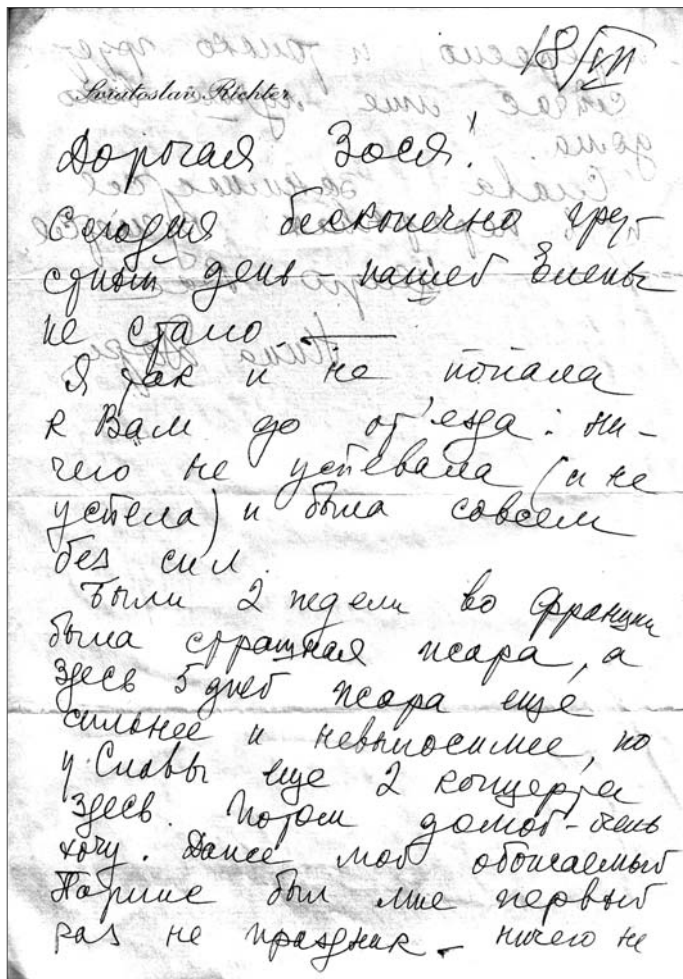 18/VII
Sviatoslav Richter
Дорогая Зося!
Сегодня бесконечно гру-
стный день – нашей Элены
не стало —
Я так и не попала
к Вам до от'езда: ни-
чего не успевала (и не
успела) и была совсем
без сил.
Были 2 недели во Франции
была страшная жара, а
здесь 5 дней жара ещё
сильнее и невыносимее, но
у Славы еще 2 концерта
здесь. Потом домой – очень
хочу. Даже мой обожаемый
Париж был мне первый
раз не праздник – ничего не